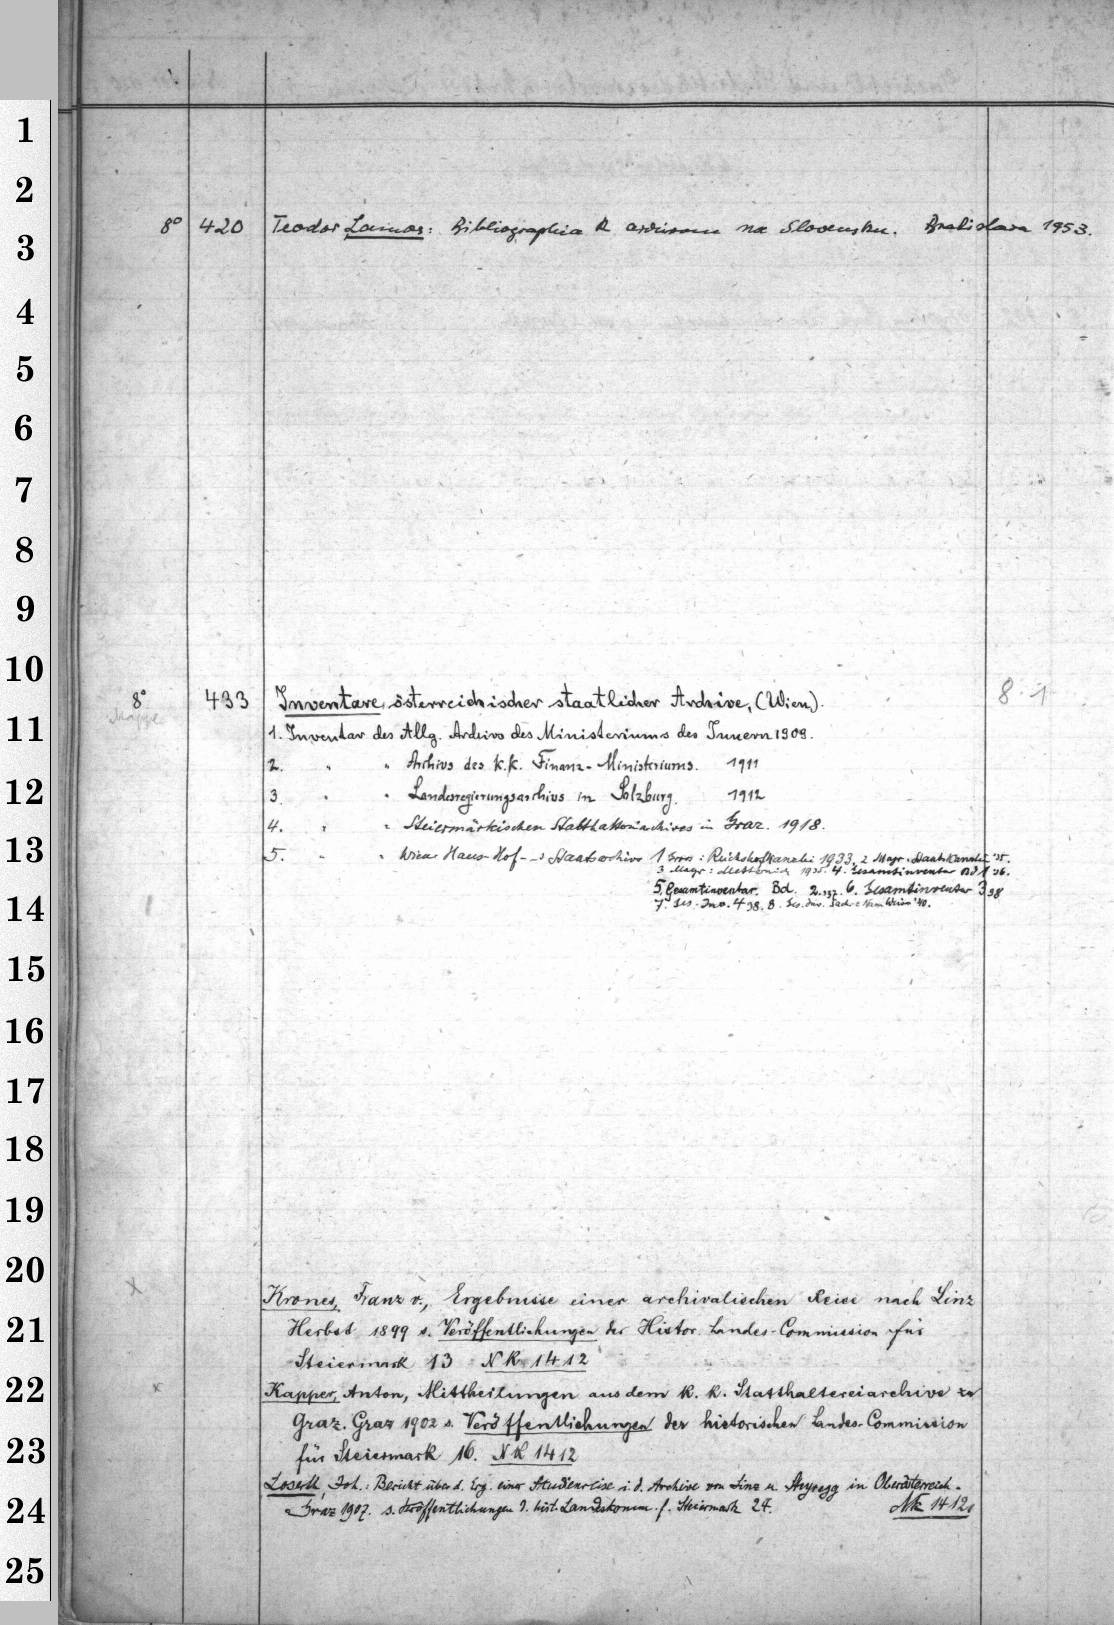 1
2
8° 420 Teodor Lamoš: Bibliographia k archivom na Slovensku. Bratislava 1953.
3
4
5
6
7
8
9
10
8° 433 Inventare österreichischer staatlicher Archive, (Wien). 8
Mappe
11 1. Inventar des Allg. Archivs des Ministeriums des Innern 1909.
2. " " Archivs des k.k. Finanz-Ministeriums. 1911
12 3. " " Landesregierungsarchivs in Salzburg. 1912
4. " " Steiermärkischen Statthaltereiarchives in Graz. 1918.
13 5. " " Wien Haus- Hof- Staatsarchivs 1 Gross: Reichshofkanzlei 1933, 2 Mayr: Staatskanzlei '35.
3 Mayr: Metternich 1935. 4. Gesamtinventar Bd 1 36.
5. Gesamtinventar. Bd. 2. 37. 6. Gesamtinventar 3 38
14 7. Ges. Inv. 4 38. 8. Ges. Inv. '40.
15
16
17
18
19
20
x Krones, Franz v., Ergebnisse einer archivalischen Reise nach Linz
21 Herbst 1899 s. Veröffentlichungen der Histor. Landes-Commission für
Steiermark 13 NK 1412
22 x Kapper, Anton, Mittheilungen aus dem k. k. Statthaltereiarchive zu
Graz. Graz 1902 s. Veröffentlichungen der historischen Landes-Commission
23 für Steiermark 16. NK 1412
Loserth, Joh.: Bericht über d. Erg. einer Studienreise i. d. Archive von Linz u. Steyregg in Oberösterreich.
24 Graz 1907. s. Veröffentlichungen d. hist. Landeskomm. f. Steiermark 24. NK 1412
25